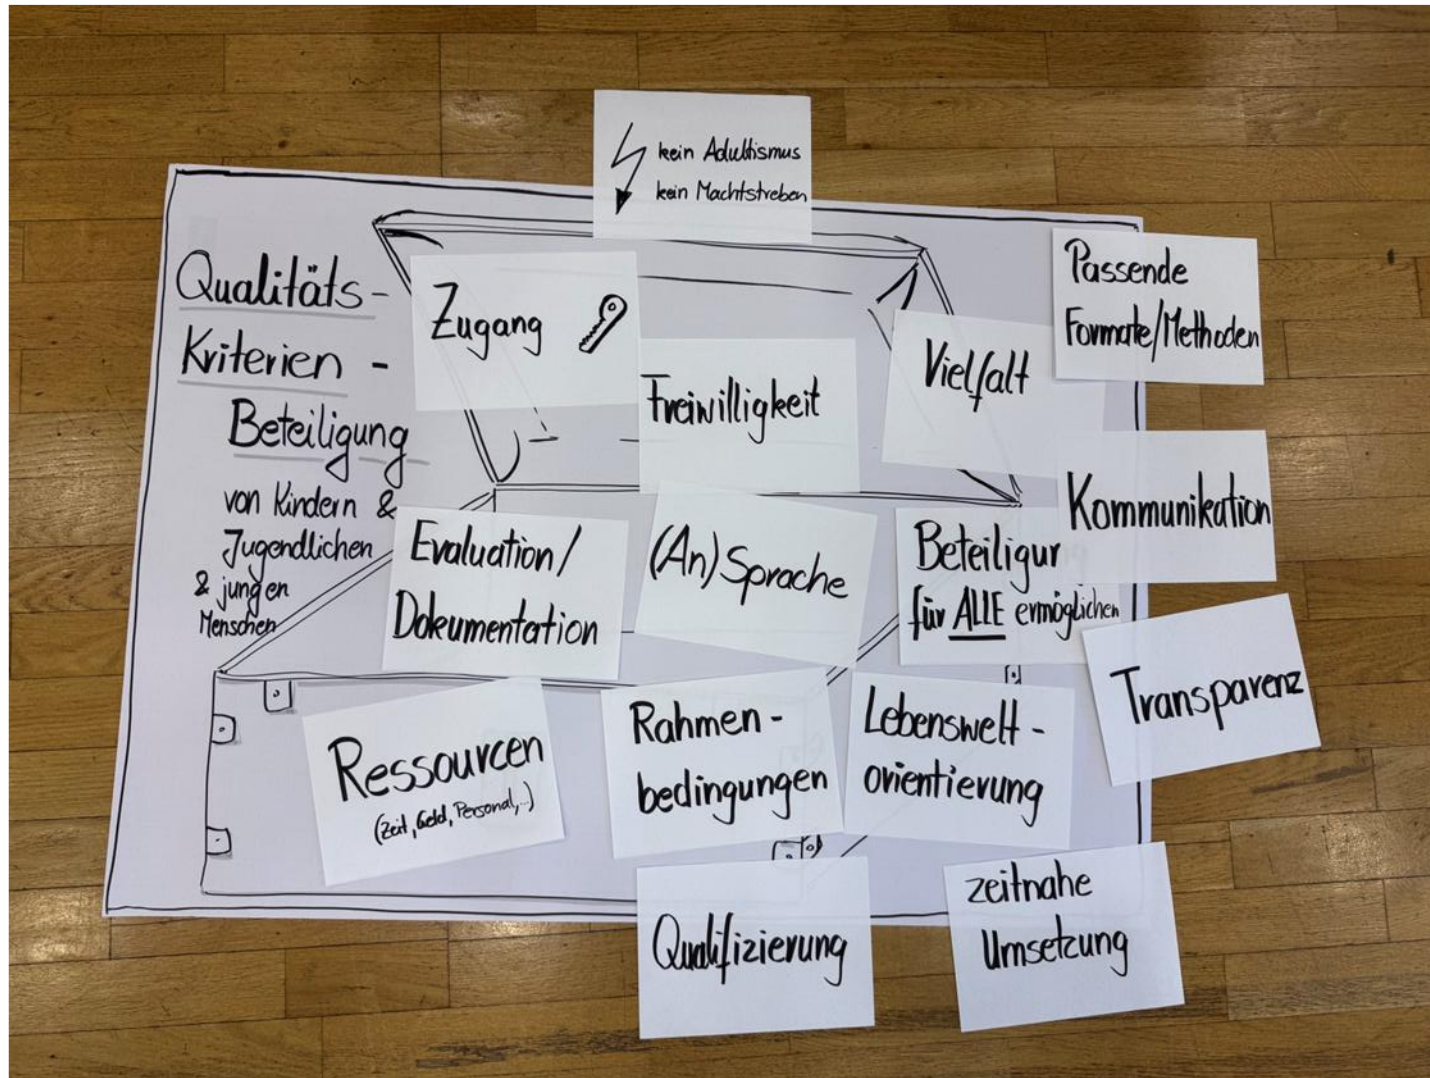 Qualitäts-
Kriterien -
Beteiligung
von Kindern &
Jugendlichen
& jungen
Menschen
kein Adultismus
kein Machtstreben
Zugang
Freiwilligkeit
Vielfalt
Passende
Formate/Methoden
Kommunikation
Evaluation/
Dokumentation
(An)Sprache
Beteiligun
für ALLE ermöglichen
Transparenz
Ressourcen
(Zeit, Geld, Personal,...)
Rahmen-
bedingungen
Lebenswelt-
orientierung
Qualifizierung
zeitnahe
Umsetzung